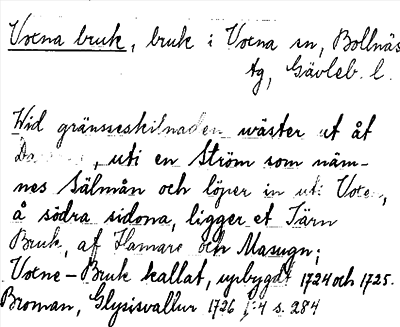 Voxna bruk, bruk i Voxna sn, Bollnäs
tg, Gävleb. l.
Wid gränneskilnaden wäster ut åt
, uti en Ström som näm-
nes Sälmån och löper in uti Voxn,
å södra sidona, ligger et Järn
Bruk, af Hamare och Masugn;
Voxne-Bruk kallat, upbygdt 1724 och 1725.
Broman, Glysisvallur 1726 f:4 s. 284